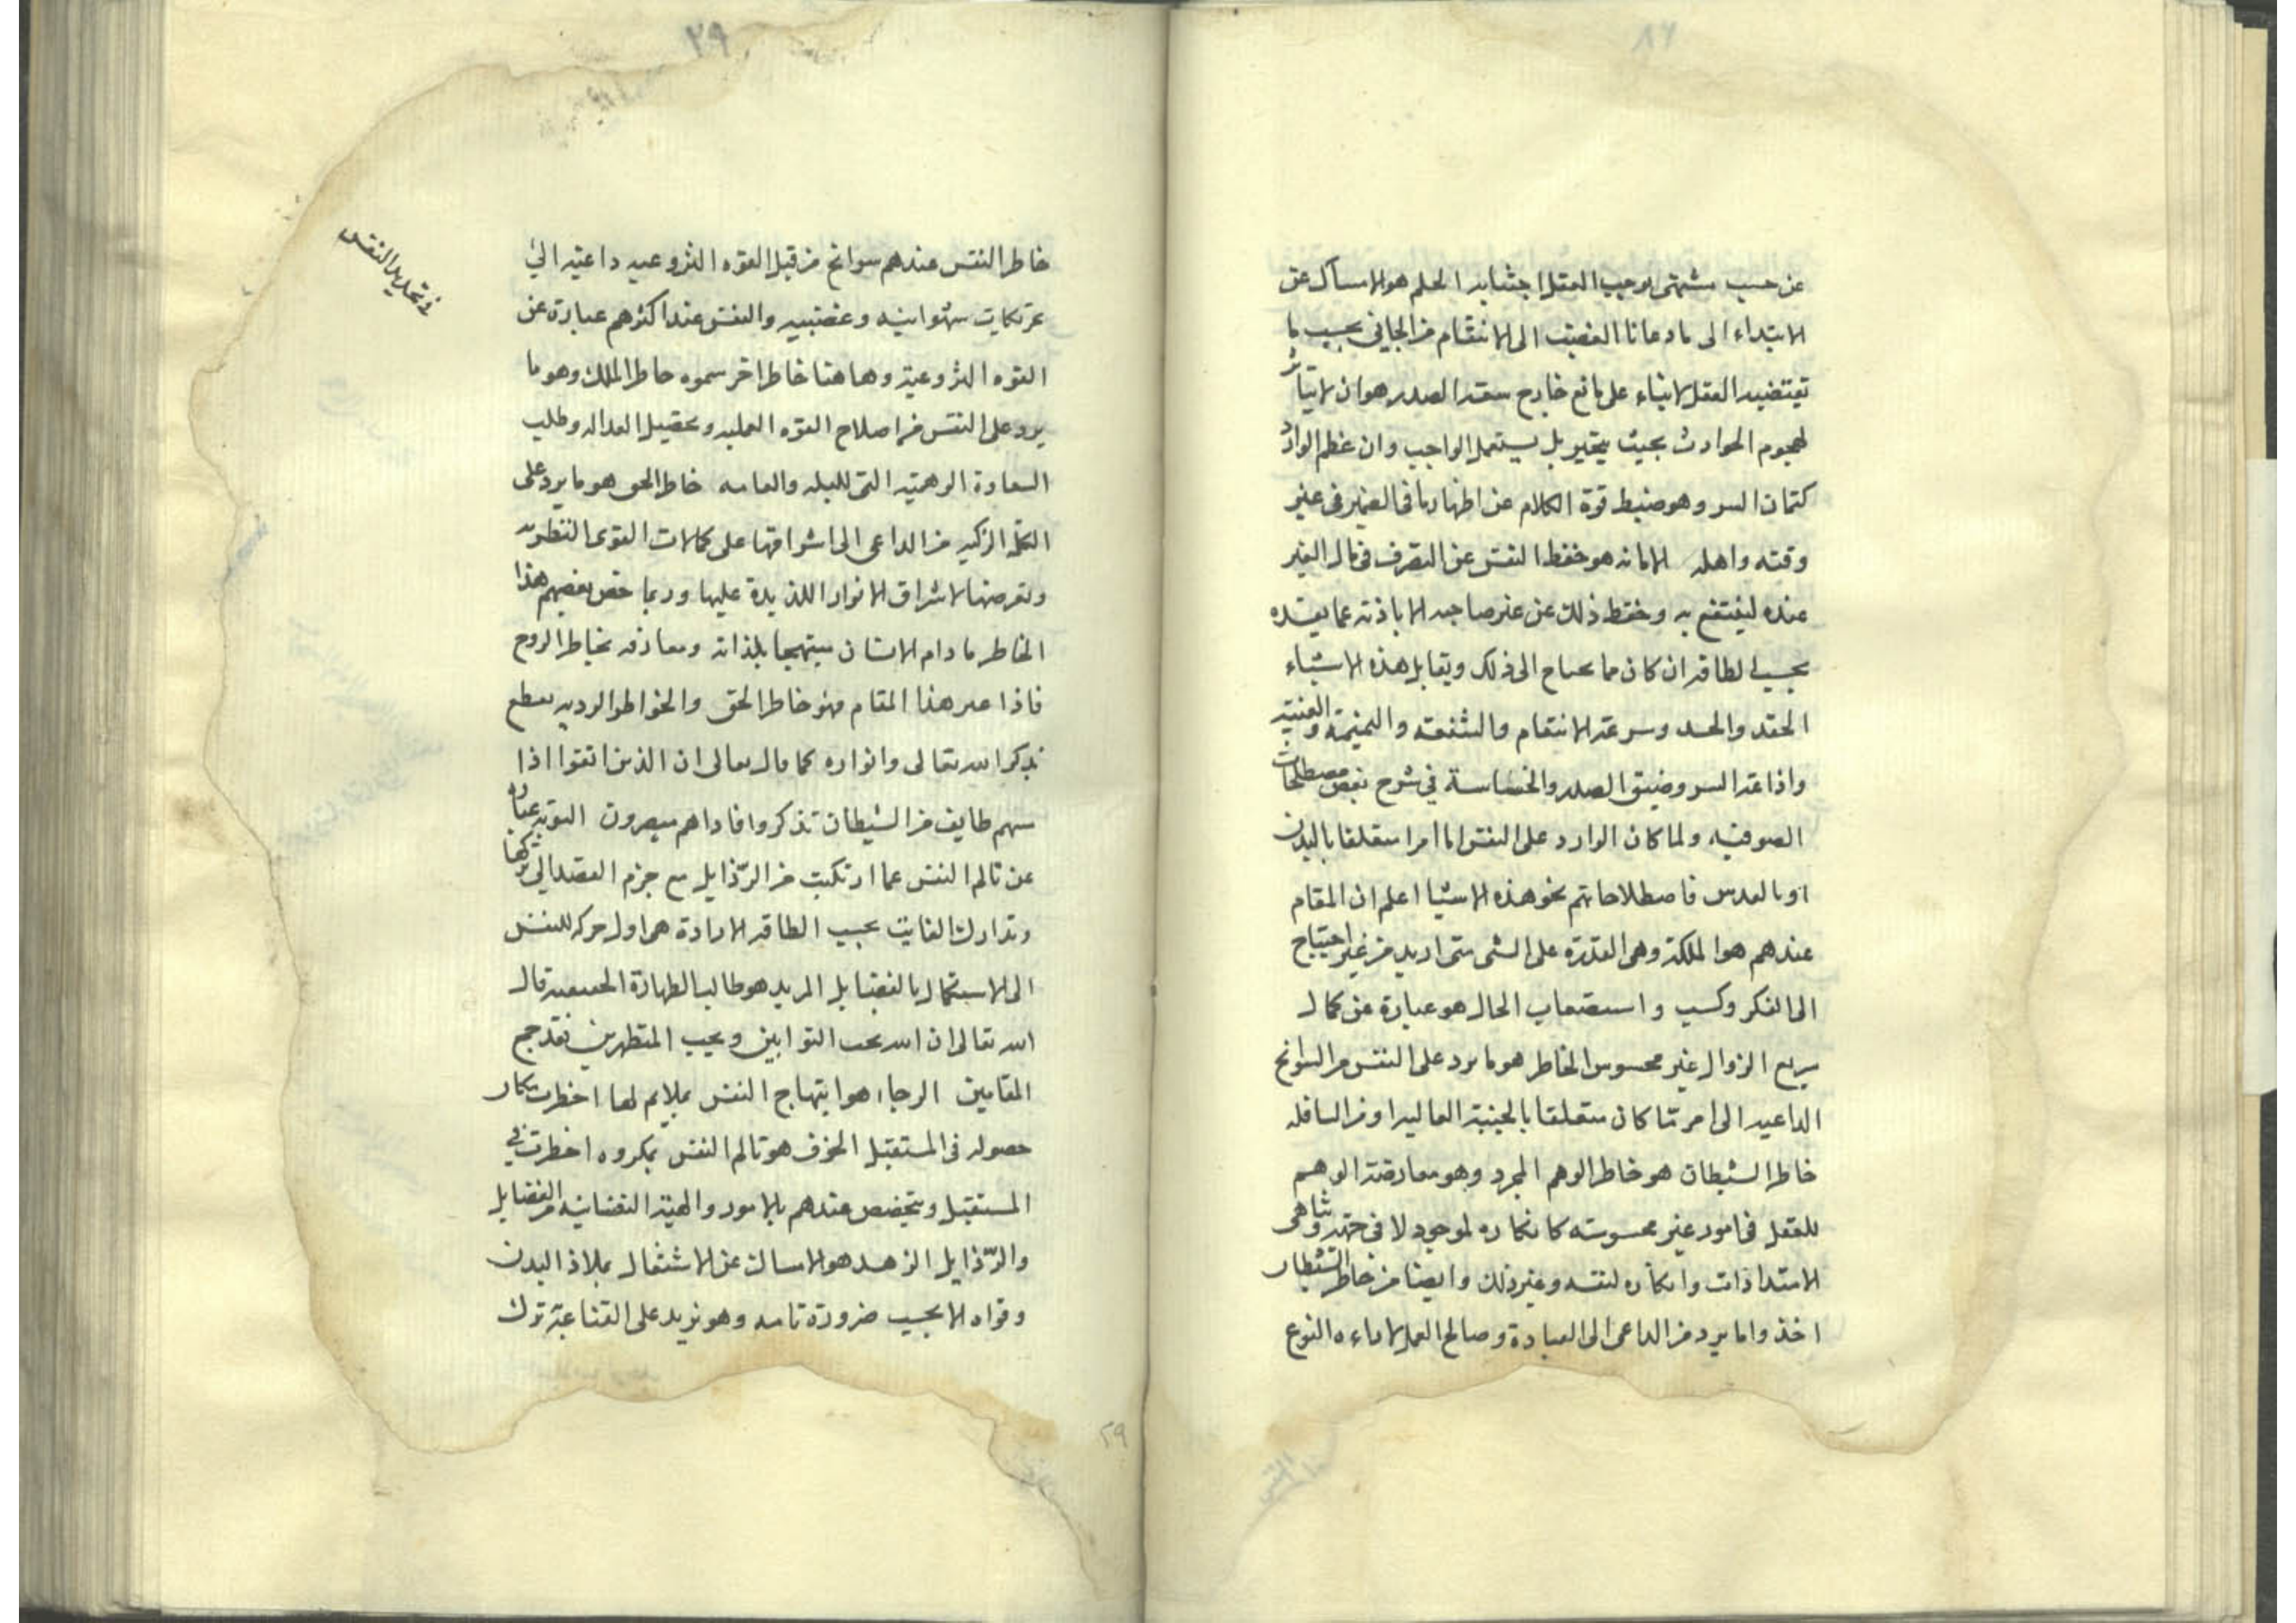 عن حسب مشتهى يوجب العقل اجتنابه الحلم هو الامساك عن
الابتداء الى ما دعانا الغضب الى الانتقام من الجانى بحسب ما
تقتضيه العقل لا بناء على مانع خارج سعة الصدر هو ان لا يتاثر
لهجوم الحوادث بحيث يتحير بل يستعمل الواجب وان عظم الوارد
كتمان السر وهو ضبط قوة الكلام عن اظهار ما فى الضمير فى غير
وقته واهله الامانه هو حفظ النفس عن التصرف فى مال الغير
عنده لينتفع به وحفظ ذلك عن غير صاحبه الا باذنه
بحسب الطاقة ان كان مما يحتاج الى ذلك ويقابل هذه الاشياء
الحقد والحسد وسرعة الانتقام والنميمة والغيبة
واذاعة السر وضيق الصدر والخساسة فى شرح بعض مصطلحات
الصوفيه ولما كان الوارد على النفس اما امرا متعلقا بالبدن
او بالقدس فاصطلاحاتهم نحو هذه الاشيا اعلم ان المقام
عندهم هو الملكة وهى القدرة على الشى متى اريد من غير احتياج
الى الفكر وكسب واستصعاب الحال هو عبارة عن كمال
سريع الزوال غير محسوس الخاطر هو ما يرد على النفس من السوانح
الداعيه الى امر ما كان متعلقا بالجنبة العاليه او من السافله
خاطر الشيطان هو خاطر الوهم المجرد وهو معارضة الوهم
للعقل فى امور غير محسوسة كانكاره لموجود لا فى جهة
الامتدادات وانكاره لنفسه وغير ذلك وايضا من خاطر الشيطان
اخذ واما يرد من الداعى الى العبادة وصالح العمل النوع
٢٩
فى تحديد النفس
خاطر النفس عندهم سوانح من قبل القوه النزوعيه داعيه الى
شهوانيه وغضبيه والنفس عند اكثرهم عبارة عن
القوه النزوعية وهاهنا خاطر اخر سموه خاطر الملك وهو ما
يرد على النفس من اصلاح القوه العمليه وتحصيل العداله وطلب
السعادة الوهميه التى للبله والعامه خاطر الحق هو ما يرد على
الزكيه من الداعى الى اشرافها على كمالات القوى النظريه
وتعرضها لاشراق الانوار اللذيذة عليها وربما خص بعضهم هذا
الخاطر ما دام الانسان مبتهجا بلذاته ومعارفه بخاطر الروح
فاذا عبر هذا المقام فهو خاطر الحق والخواطر الرديه تنقطع
بذكر الله تعالى وانواره كما قال تعالى ان الذين اتقوا اذا
مسهم طايف من الشيطان تذكروا فاذا هم مبصرون التوبة عبارة
عن تالم النفس عما ارتكبت من الرّذايل مع جزم القصد الى تركها
وتدارك الفايت بحسب الطاقة الارادة هى اول حركه للنفس
الى الاستكمال بالفضايل المريد هو طالب الطهارة الحقيقية قال
الله تعالى ان الله يحب التوابين ويحب المتطهرين فقد جمع
المقامين الرجاء هو ابتهاج النفس بملايم لها اخطرت
حصوله فى المستقبل الخوف هو تالم النفس بمكروه اخطرت فى
المستقبل ويتخصص عندهم بالامور والهيئة النفسانيه من الفضايل
والرّذايل الزهد هو الامساك عن الاشتغال بملاذ البدن
وقواه الا بحسب ضرورة تامه وهو يزيد على القناعة بترك
٢٩